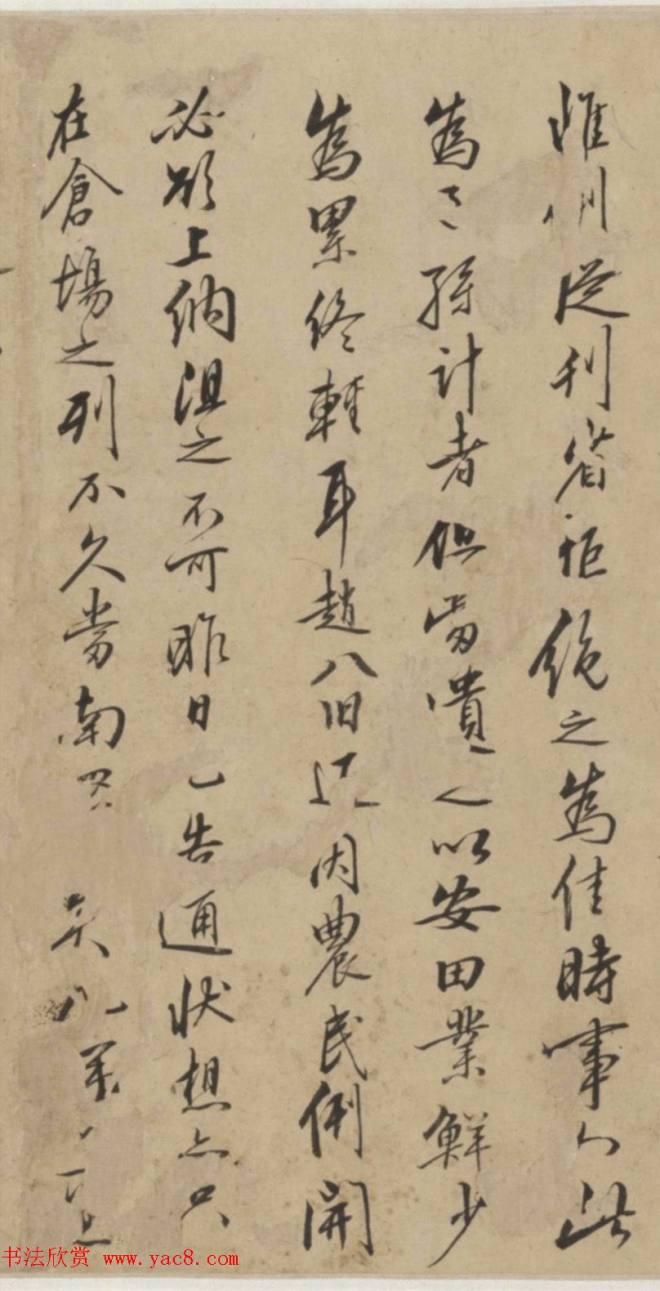 惟例從刊省拒絶之為佳時事如此
為子孫計者但當遺之以安田業鮮少
為累終輕耳趙八旧因農民例開
必欲上納沮之不可昨日已告通狀想亦只
在倉場之列不久當南
书法欣赏 www.yac8.com